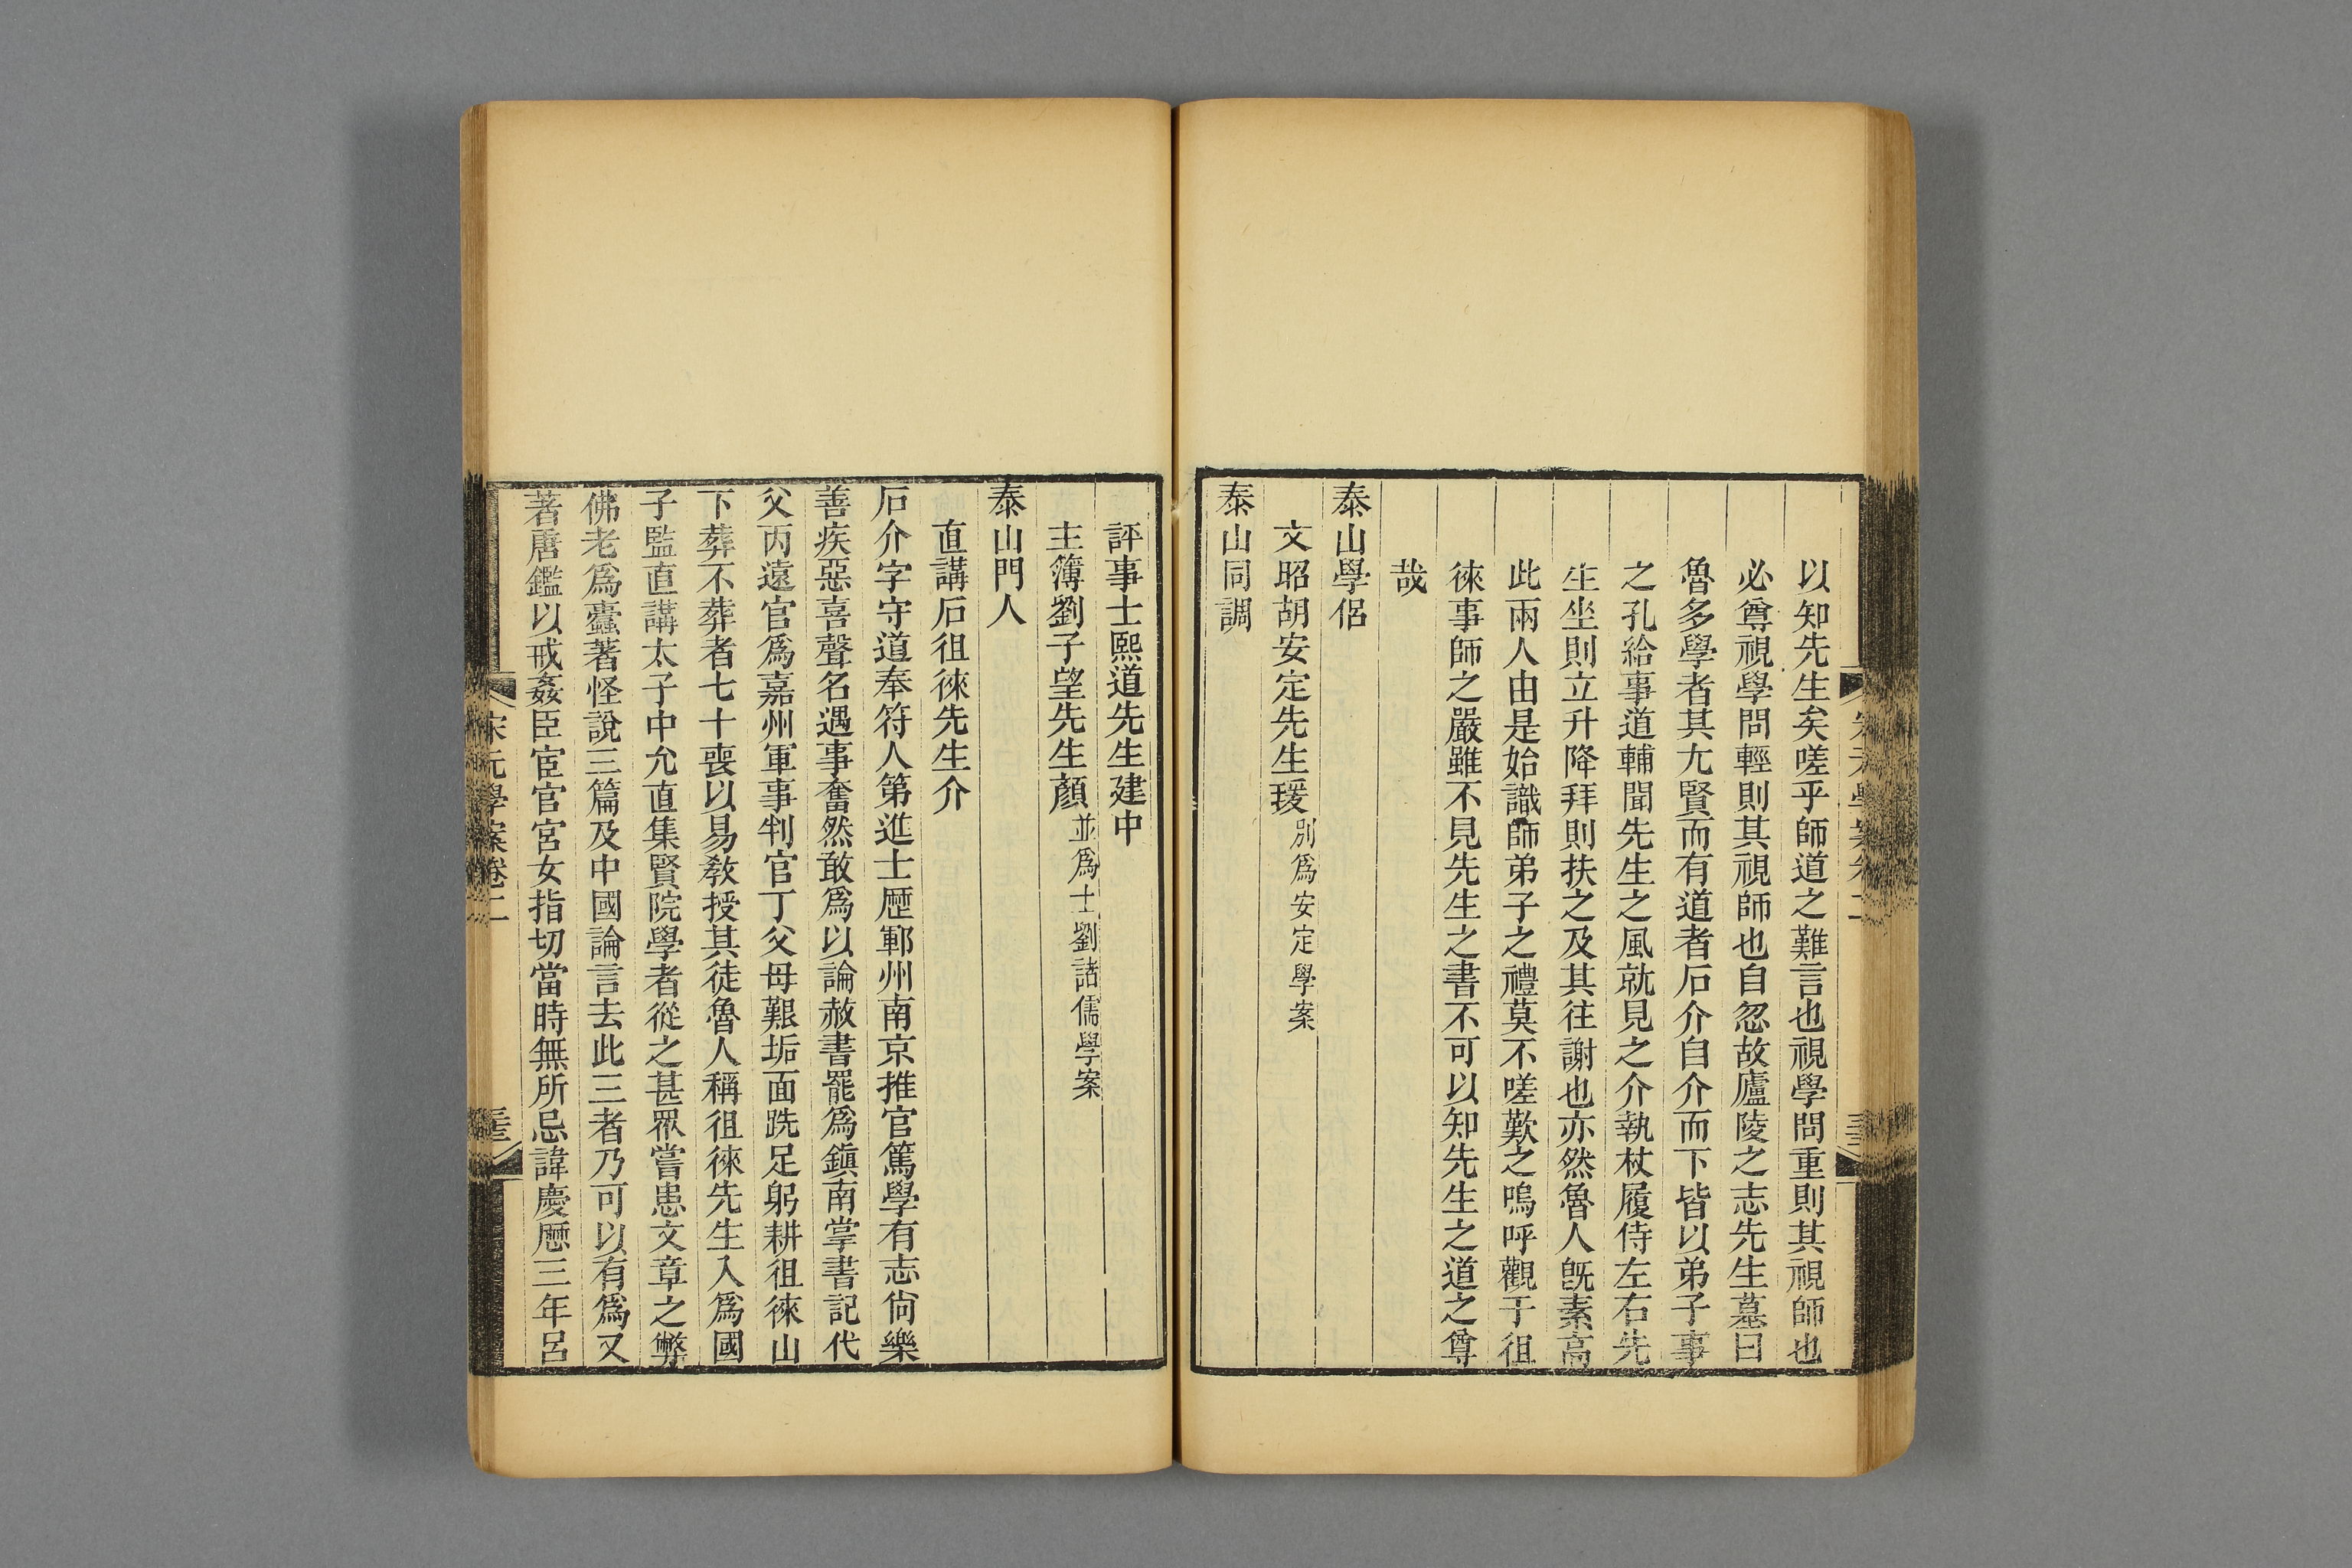 以知先生矣嗟乎師道之難言也視學問重則其視師也
必尊視學問輕則其視師也自忽故廬陵之志先生墓曰
魯多學者其尤賢而有道者石介自介而下皆以弟子事
之孔給事道輔聞先生之風就見之介執杖履侍左右先
生坐則立升降拜則扶之及其往謝也亦然魯人旣素高
此兩人由是始識師弟子之禮莫不嗟歎之嗚呼觀于徂
徠事師之嚴雖不見先生之書不可以知先生之道之尊
哉
泰山學侶
文昭胡安定先生瑗別爲安定學案
泰山同調
評事士熙道先生建中
主簿劉子望先生顏並爲士劉諸儒學案
泰山門人
直講石徂徠先生介
石介字守道奉符人第進士歷鄆州南京推官篤學有志尙樂
善疾惡喜聲名遇事奮然敢爲以論赦書罷爲鎭南掌書記代
父丙遠官爲嘉州軍事判官丁父母艱垢面跣足躬耕徂徠山
下葬不葬者七十喪以易敎授其徒魯人稱徂徠先生入爲國
子監直講太子中允直集賢院學者從之甚眾嘗患文章之弊
佛老爲蠹著怪說三篇及中國論言去此三者乃可以有爲又
著唐鑑以戒姦臣宦官宮女指切當時無所忌諱慶厯三年呂
宋元學案卷二